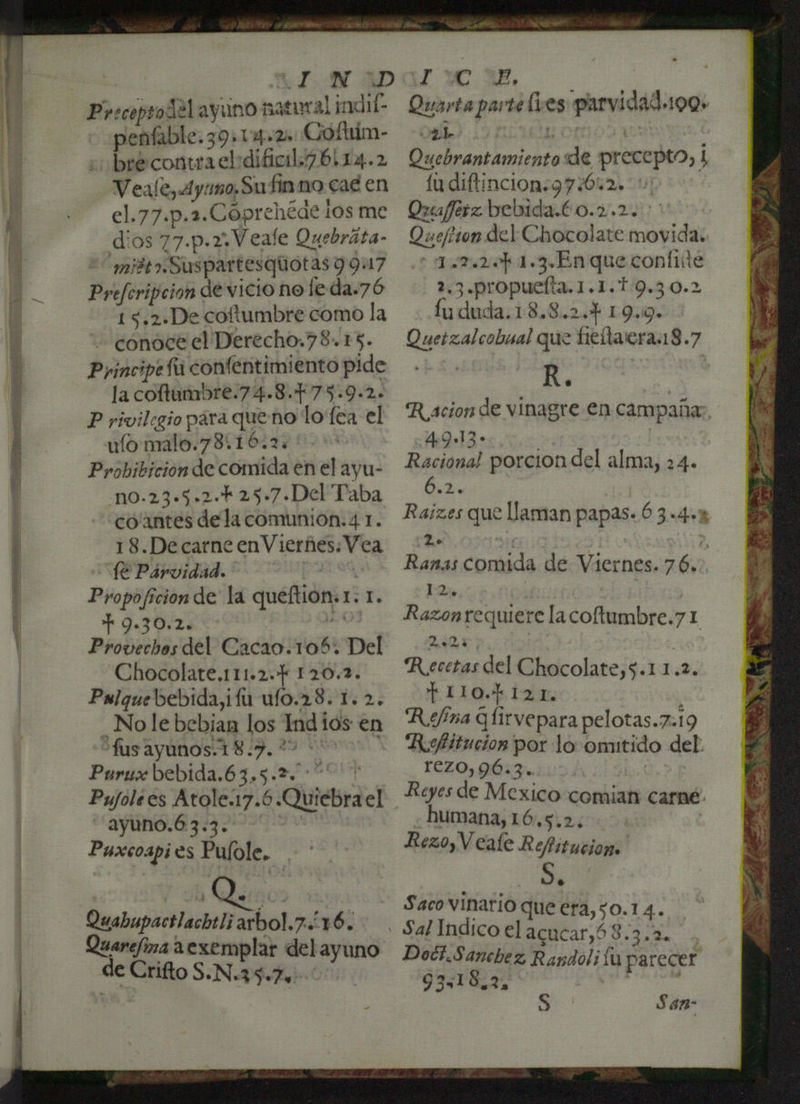 INDICE.
Precepto del ayuno natural indis-
pensable.39.14.2. Costum-
bre contra el dificil.76.14.2
Vease, Ayuno. Su fin no cae en
el.77.p.2.Cõprehẽde los me
dios 77.p.2. Vease Quebrãta-
miẽto. Sus partes quotas 99.17
Prescripcion de vicio no se da.76
15.2.De costumbre como la
conoce el Derecho.78.15.
Principe su consentimiento pide
la costumbre.74.8.Ɨ 75.9.2.
Privilegio para que no lo sea el
uso malo.78.16.2.
Prohibicion de comida en el ayu-
no.23.5.2.Ɨ 25.7.Del Taba
co antes de la comunion.41.
18.De carne en Viernes. Vea
se Parvidad.
Proposicion de la question.1.1.
Ɨ 9.30.2.
Provechos del Cacao.106. Del
Chocolate.111.2.Ɨ 120.2.
Pulque bebida, i su uso.28.1.2.
No le bebian los Indios en
sus ayunos.18.7.
Purux bebida.63.5.2.
Pusole es Atole.17.6.Quiebra el
ayuno.63.3.
Puxcoapi es Pusole.
Q.
Quahupactlachtli arbol.7.16.
Quaresma a exemplar del ayuno
de Cristo S.N.35.7.
Quarta parte si es parvidad.100.
21.
Quebrantamiento de precepto, i
su distincion.97.6.2.
Quasserz bebida.60.2.2.
Question del Chocolate movida.
1.2.2.Ɨ 1.3.En que consiste
2.3.propuesta.1.1.Ɨ 9.30.2
su duda.18.8.2.Ɨ 19.9.
Quetzalcobual que fiesta era.18.7
R.
Racion de vinagre en campaña.
49.13.
Racional porcion del alma, 24.
6.2.
Raizes que llaman papas. 63.4.
2.
Ranas comida de Viernes. 76.
12.
Razon requiere la costumbre.71
2.2.
Recetas del Chocolate,5.11.2.
Ɨ 110.Ɨ 121.
Resina q̃ sirve para pelotas.7.19
Restitucion por lo omitido del
rezo,96.3.
Reyes de Mexico comian carne
humana,16.5.2.
Rezo, Vease Restitucion.
S.
Saco vinario que era,50.14.
Sal Indico el açucar,68.3.2.
Doct. Sanchez Randoli su parecer
93.18.2.
S San-